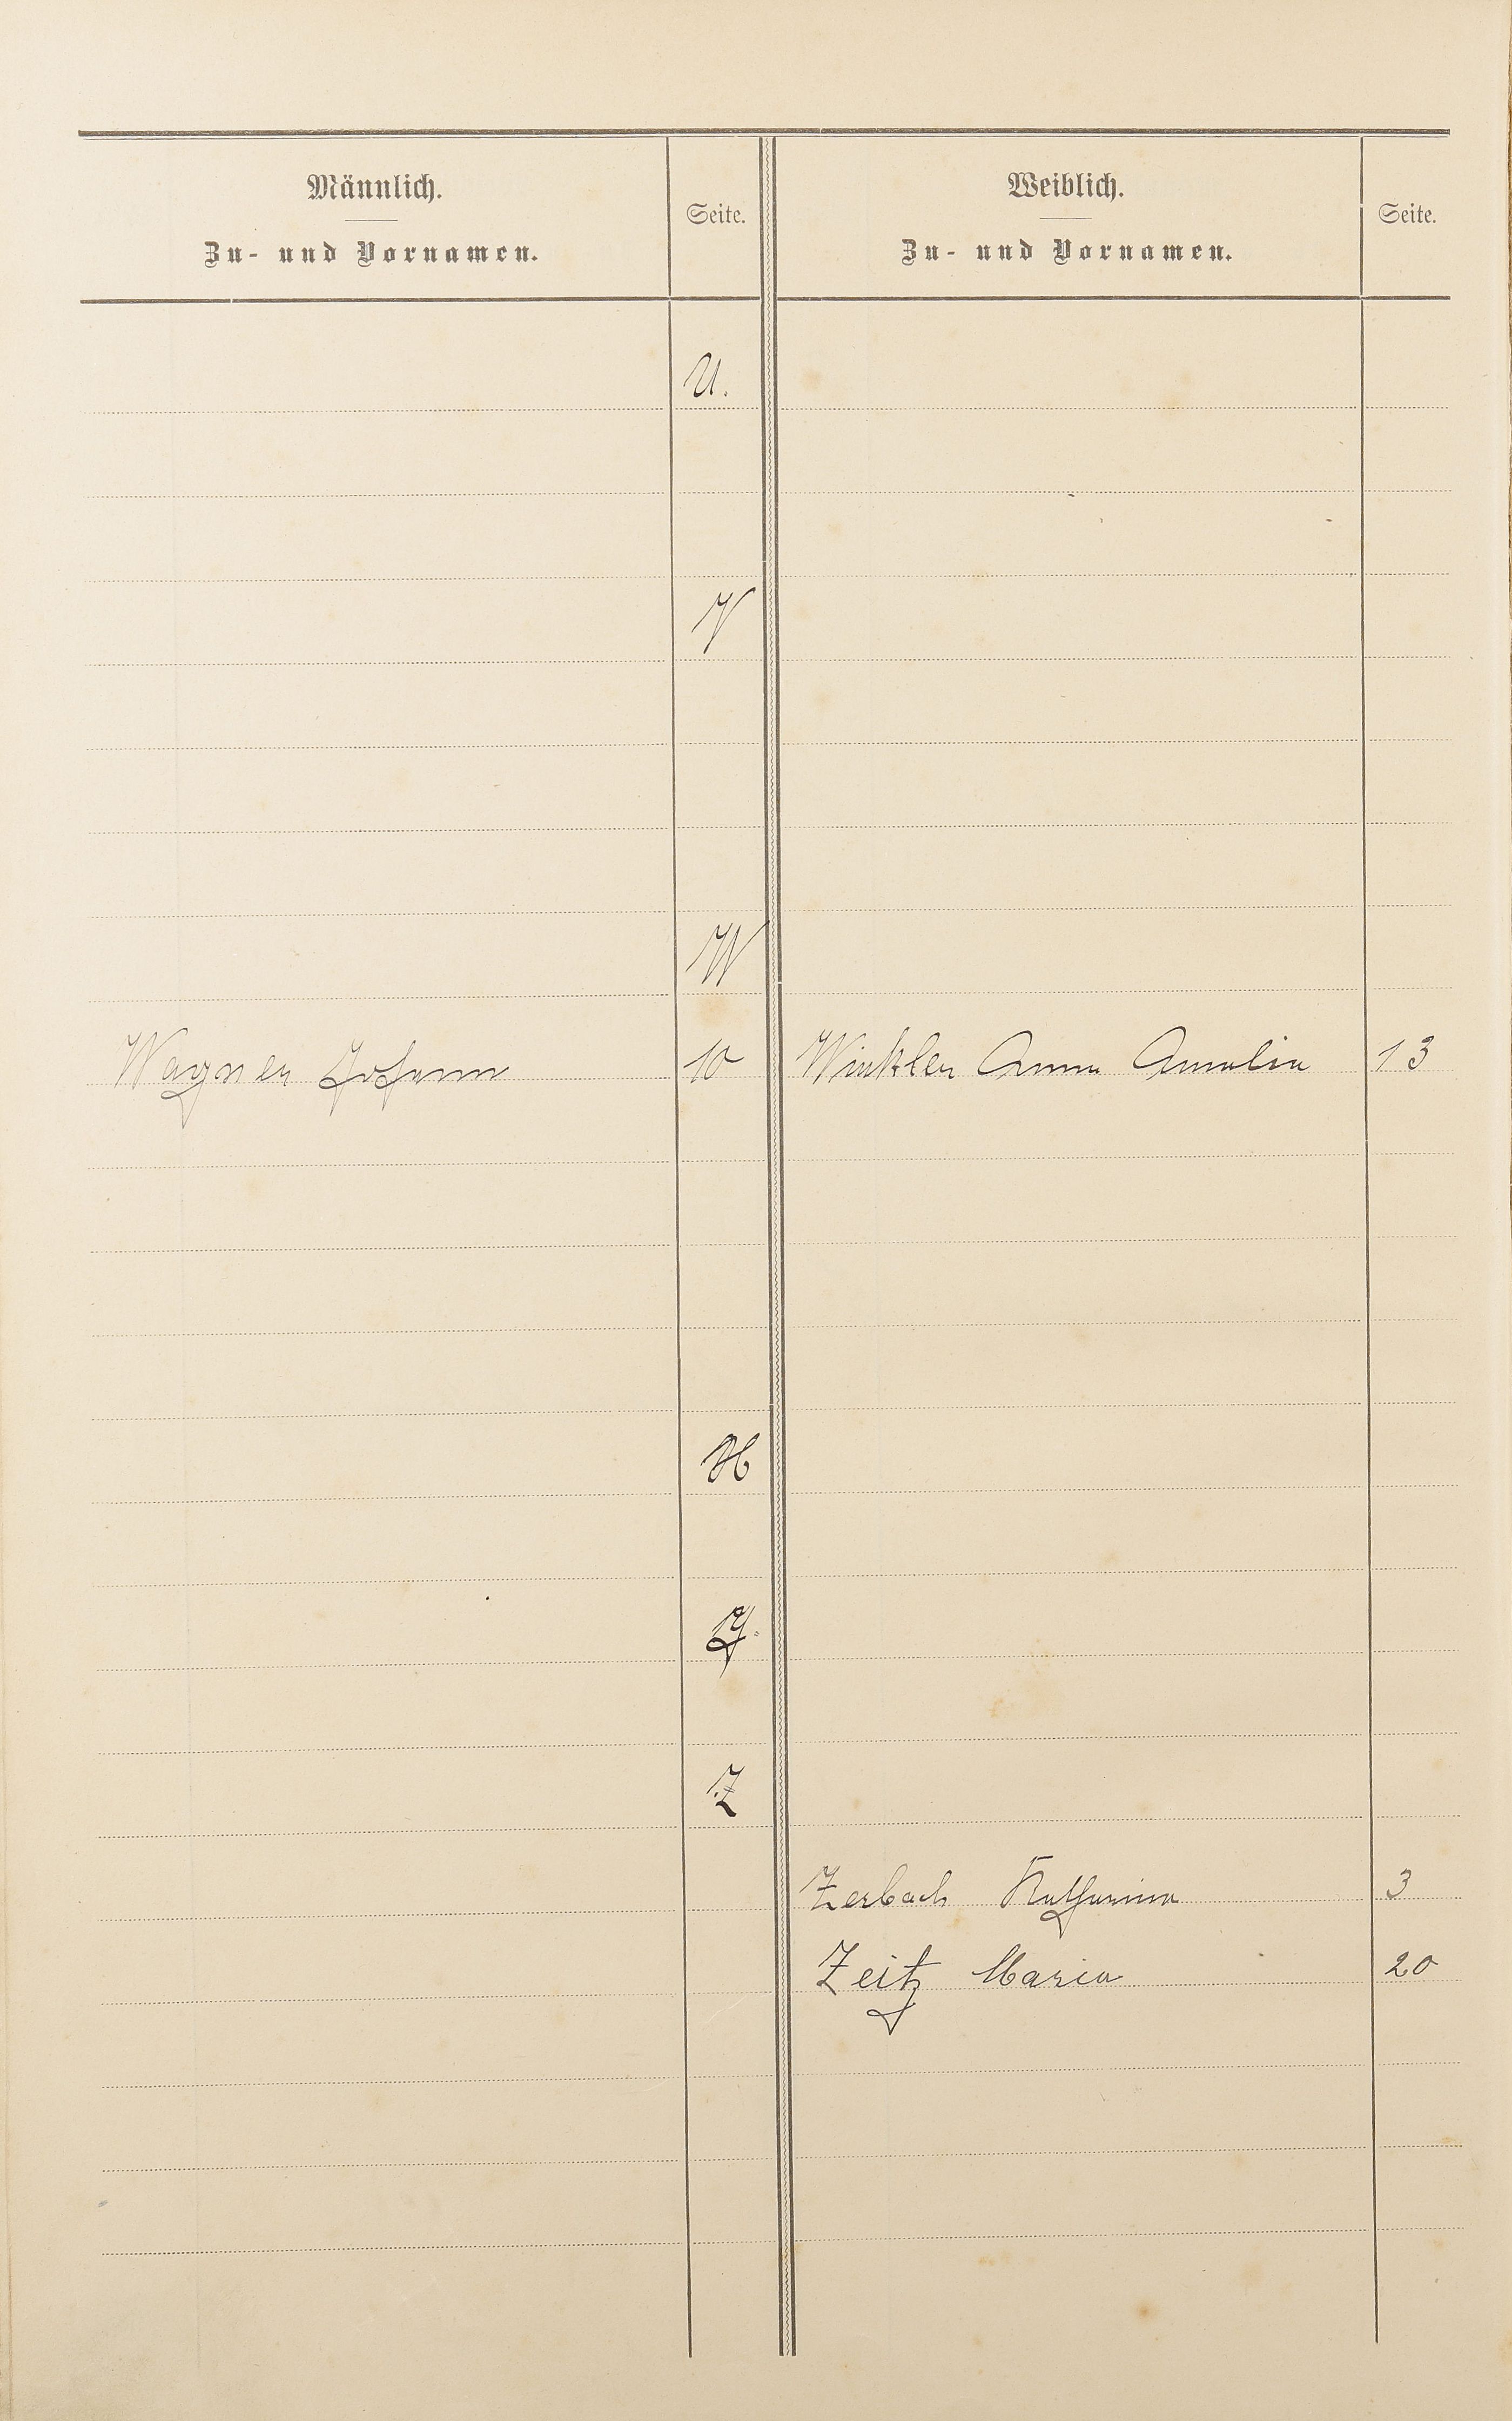 Männlich.
Zu- und Vornamen.
Seite.
Weiblich.
Zu- und Vornamen.
Seite.
U.
V
W
Wagner Johann 10 Winkler Anna Amalia 13
X
Y.
Z
Zerbach Katharina 3
Zeitz Maria 20